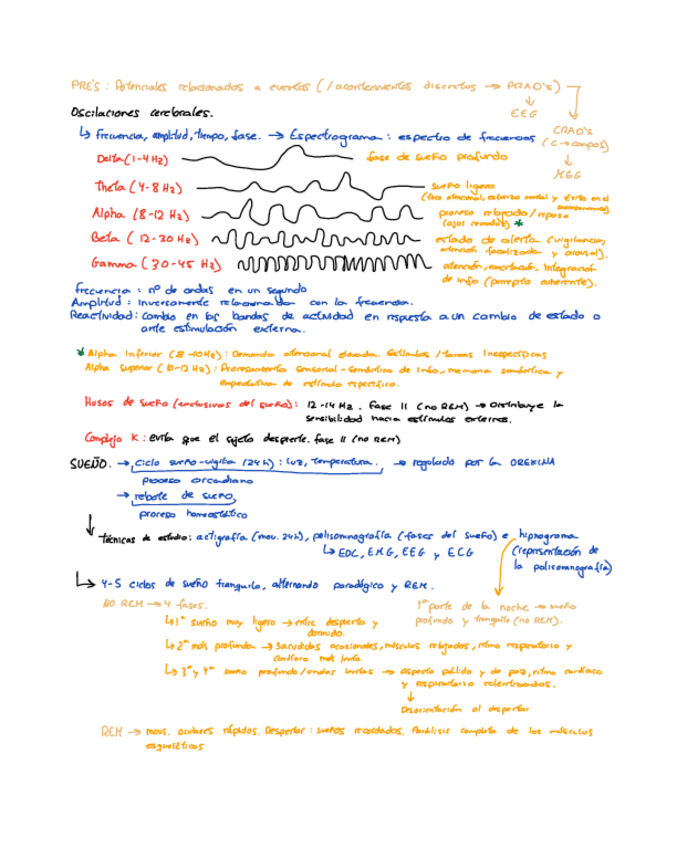 PRE's : Potenciales relacionados a eventos (/acontecimientos discretos → PRAD's)
EEG
CRAD's
(C → campos)
MEG
Oscilaciones cerebrales.
↳ Frecuencia, amplitud, tiempo, fase. → Espectrograma : espectro de frecuencias
Delta (1-4 Hz) fase de sueño profundo
Theta (4-8 Hz) sueño ligero
(foco atencional, esfuerzo mental y éxito en el
Alpha (8-12 Hz) proceso relajado / reposo
(ojos cerrados) *
Beta (12-30 Hz) estado de alerta (vigilancia,
atención focalizada y arousal).
Gamma (30-45 Hz) atención, excitación, integración
de info (percepto coherente).
Frecuencia : nº de ondas en un segundo
Amplitud : inversamente relacionada con la frecuencia.
Reactividad: cambio en las bandas de actividad en respuesta a un cambio de estado o
ante estimulación externa.
* Alpha inferior (8-10Hz) : Demanda atencional elevada. Estímulos / tareas inespecíficas
Alpha superior (10-12 Hz) : Procesamiento sensorial-semántico de info, memoria semántica y
expectativa de estímulo específico.
Husos de sueño (exclusivos del sueño) : 12-14 Hz. Fase II (no REM) → Disminuye la
sensibilidad hacia estímulos externos.
Complejo K : evita que el sujeto despierte. fase II (no REM)
SUEÑO. → Ciclo sueño-vigilia (24h) : luz, temperatura. → regulado por la OREXINA
proceso circadiano
→ rebote de sueño
proceso homeostático
Técnicas de estudio: actigrafía (mov. 24h), polisomnografía (fases del sueño) e hipnograma
↳ EOC, EMG, EEG y ECG (representación de
la polisomnografía)
↳ 4-5 ciclos de sueño tranquilo, alternando paradójico y REM.
NO REM → 4 fases. 1ª parte de la noche → sueño
profundo y tranquilo (no REM).
↳ 1ª sueño muy ligero → entre despierto y
dormido.
↳ 2ª más profunda → Sacudidas ocasionales, músculos relajados, ritmo respiratorio y
cardíaco más lento.
↳ 3ª y 4ª sueño profundo/ondas lentas → aspecto pálido y de paz, ritmo cardíaco
y respiratorio relentizados.
↓
Desorientación al despertar
REM → movs. oculares rápidos. Despertar : sueños recordados. Parálisis completa de los músculos
esqueléticos